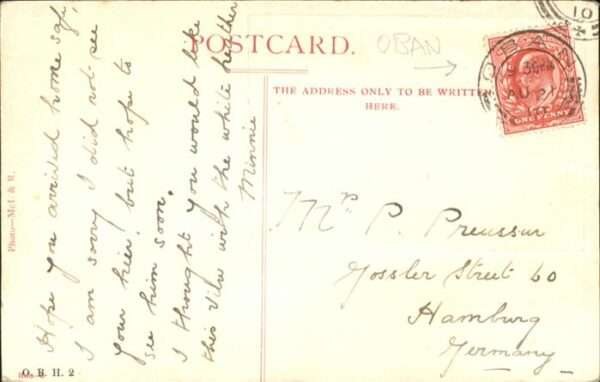 POSTCARD.
OBAN
THE ADDRESS ONLY TO BE WRITTEN
HERE.
OBAN
AU 21
10
ONE PENNY
Hope you arrived home safe,
I am sorry I did not see
your heir! but hope to
see him soon.
I thought you would like
this view with the white heather
Minnie
Mr P. Preussur
Gossler Street 60
Hamburg
Germany
Photo—McI & R.
O. B. H. 2